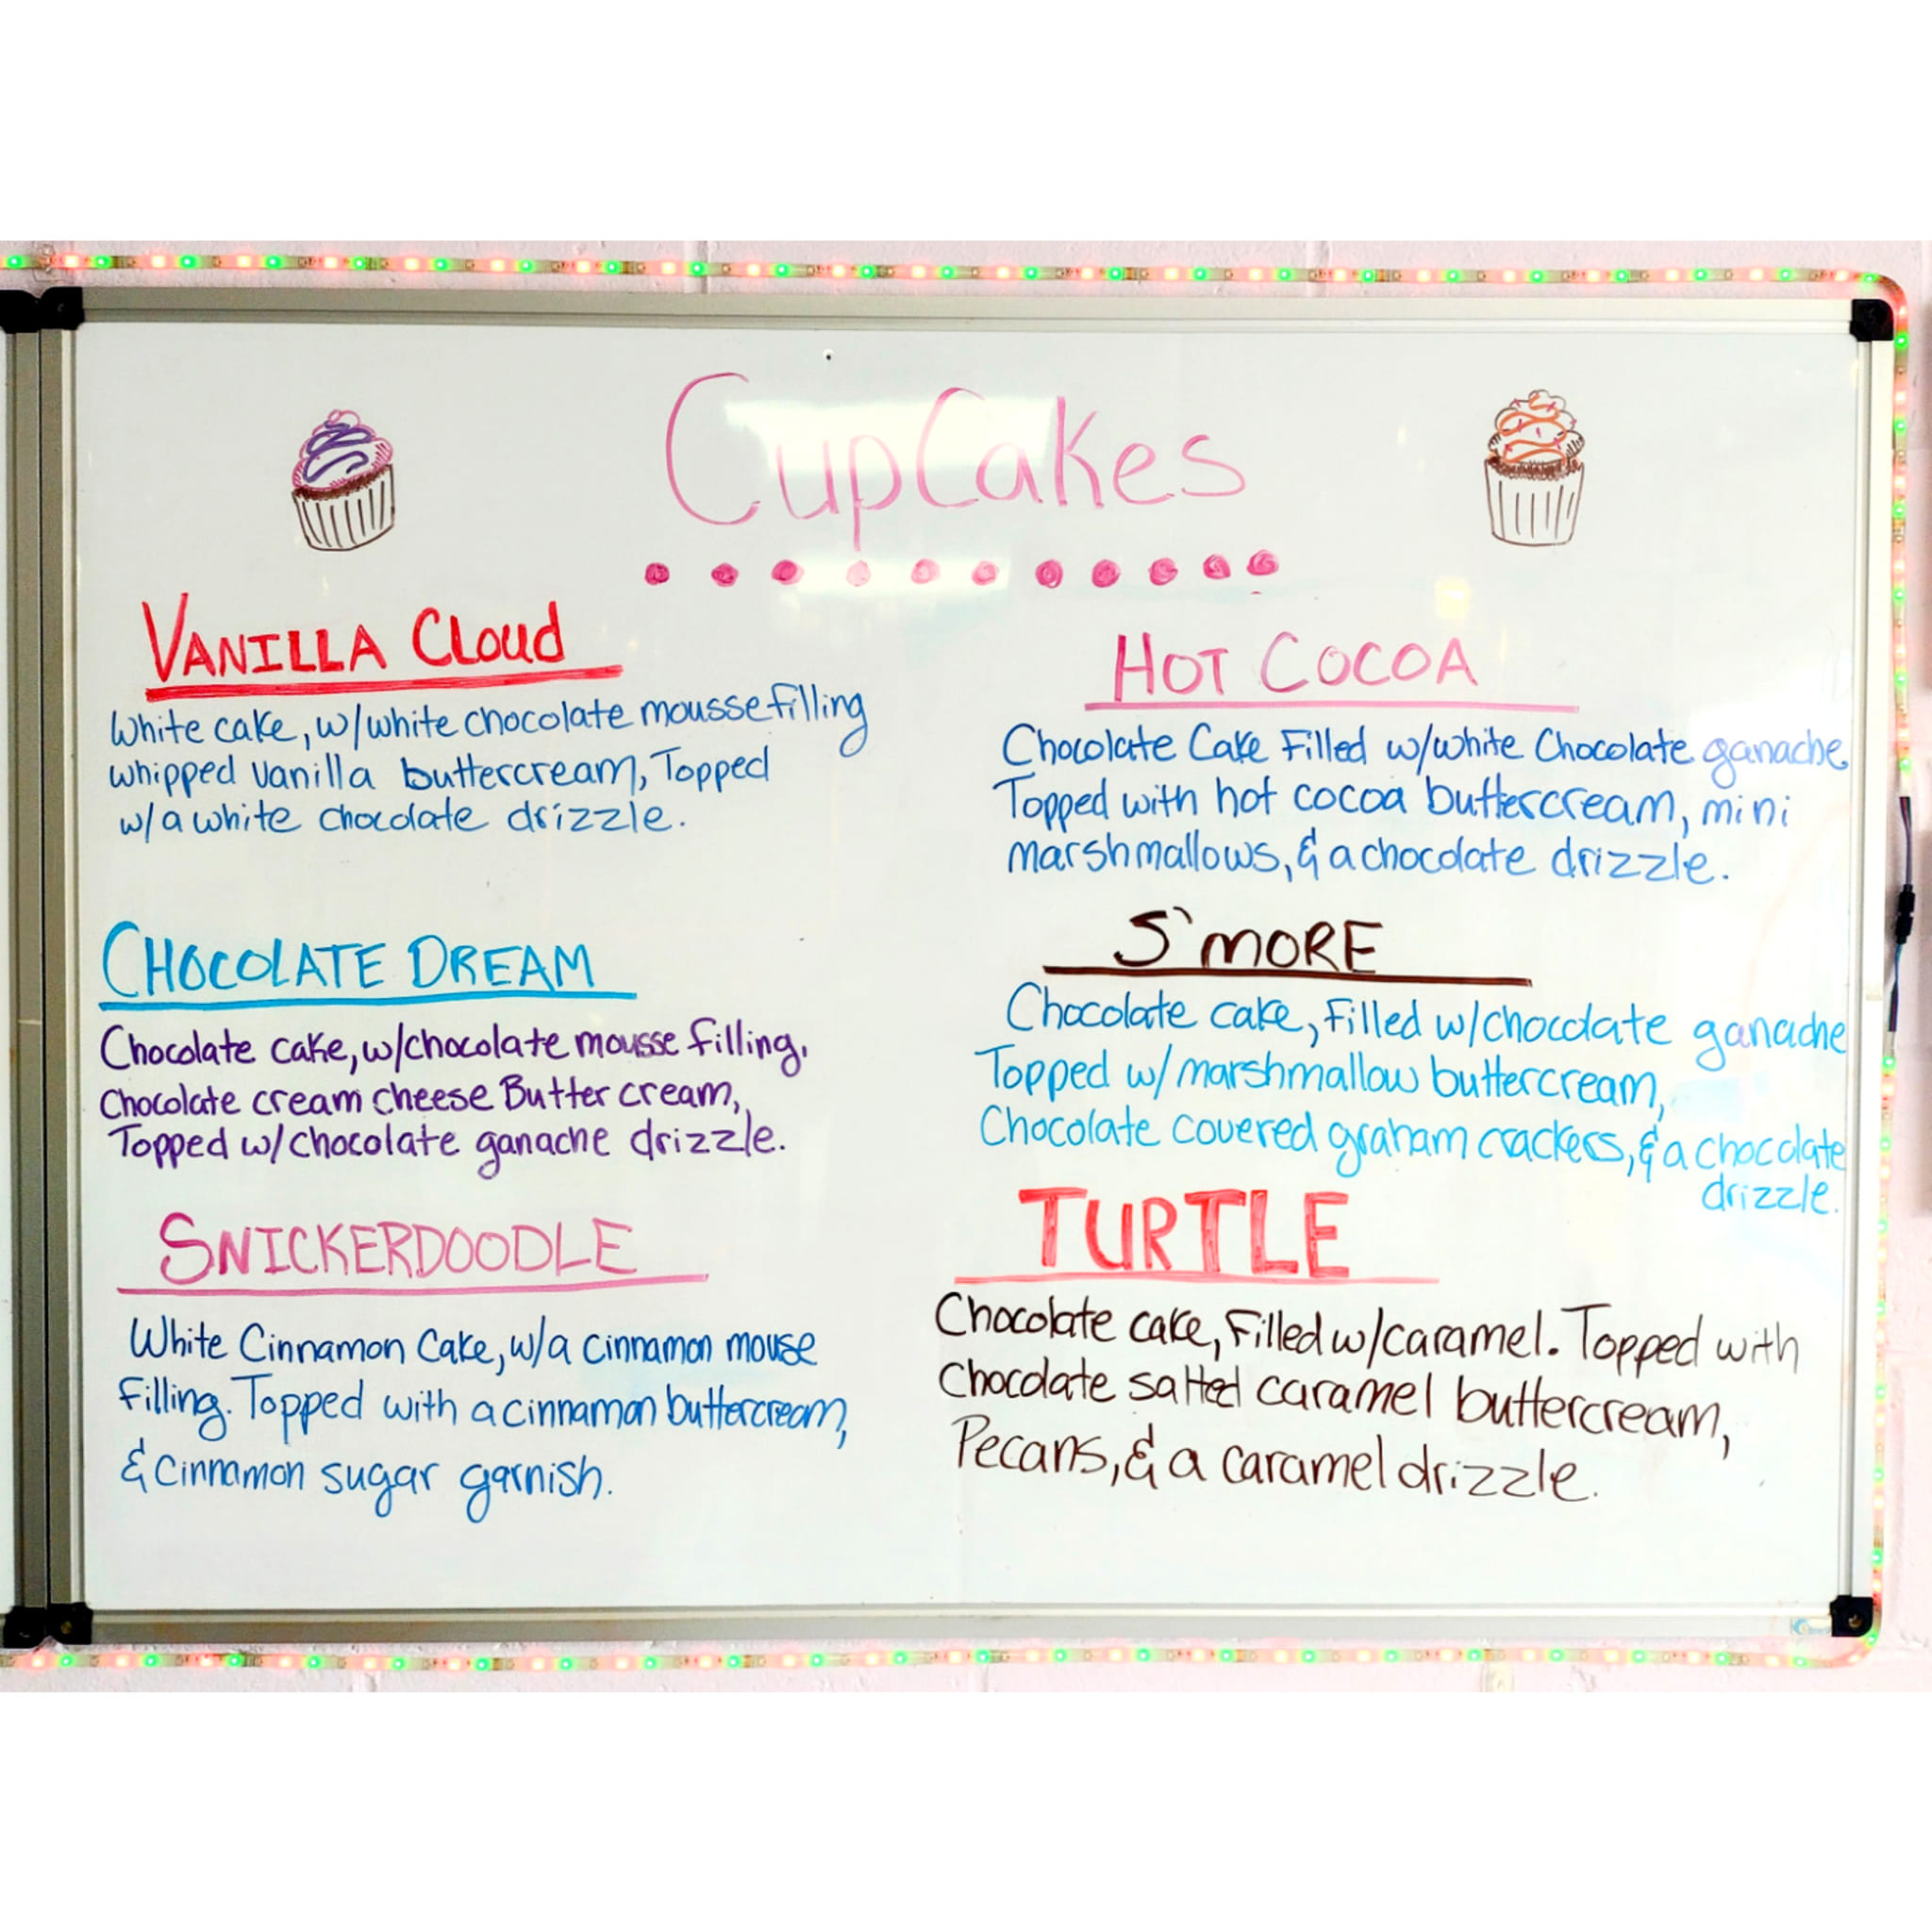 CupCakes
VANILLA Cloud
White cake, w/white chocolate mousse filling
whipped vanilla buttercream, Topped
w/a white chocolate drizzle.
CHOCOLATE DREAM
Chocolate cake, w/chocolate mousse filling,
Chocolate cream cheese Butter cream,
Topped w/chocolate ganache drizzle.
SNICKERDOODLE
White Cinnamon Cake, w/a cinnamon mouse
Filling. Topped with a cinnamon buttercream,
& cinnamon sugar garnish.
HOT COCOA
Chocolate Cake Filled w/white Chocolate ganache
Topped with hot cocoa buttercream, mini
marshmallows, & a chocolate drizzle.
S'MORE
Chocolate cake, Filled w/chocolate ganache
Topped w/ marshmallow buttercream,
Chocolate covered graham crackers, & a chocolate
drizzle.
TURTLE
Chocolate cake, Filled w/caramel. Topped with
Chocolate salted caramel buttercream,
Pecans, & a caramel drizzle.